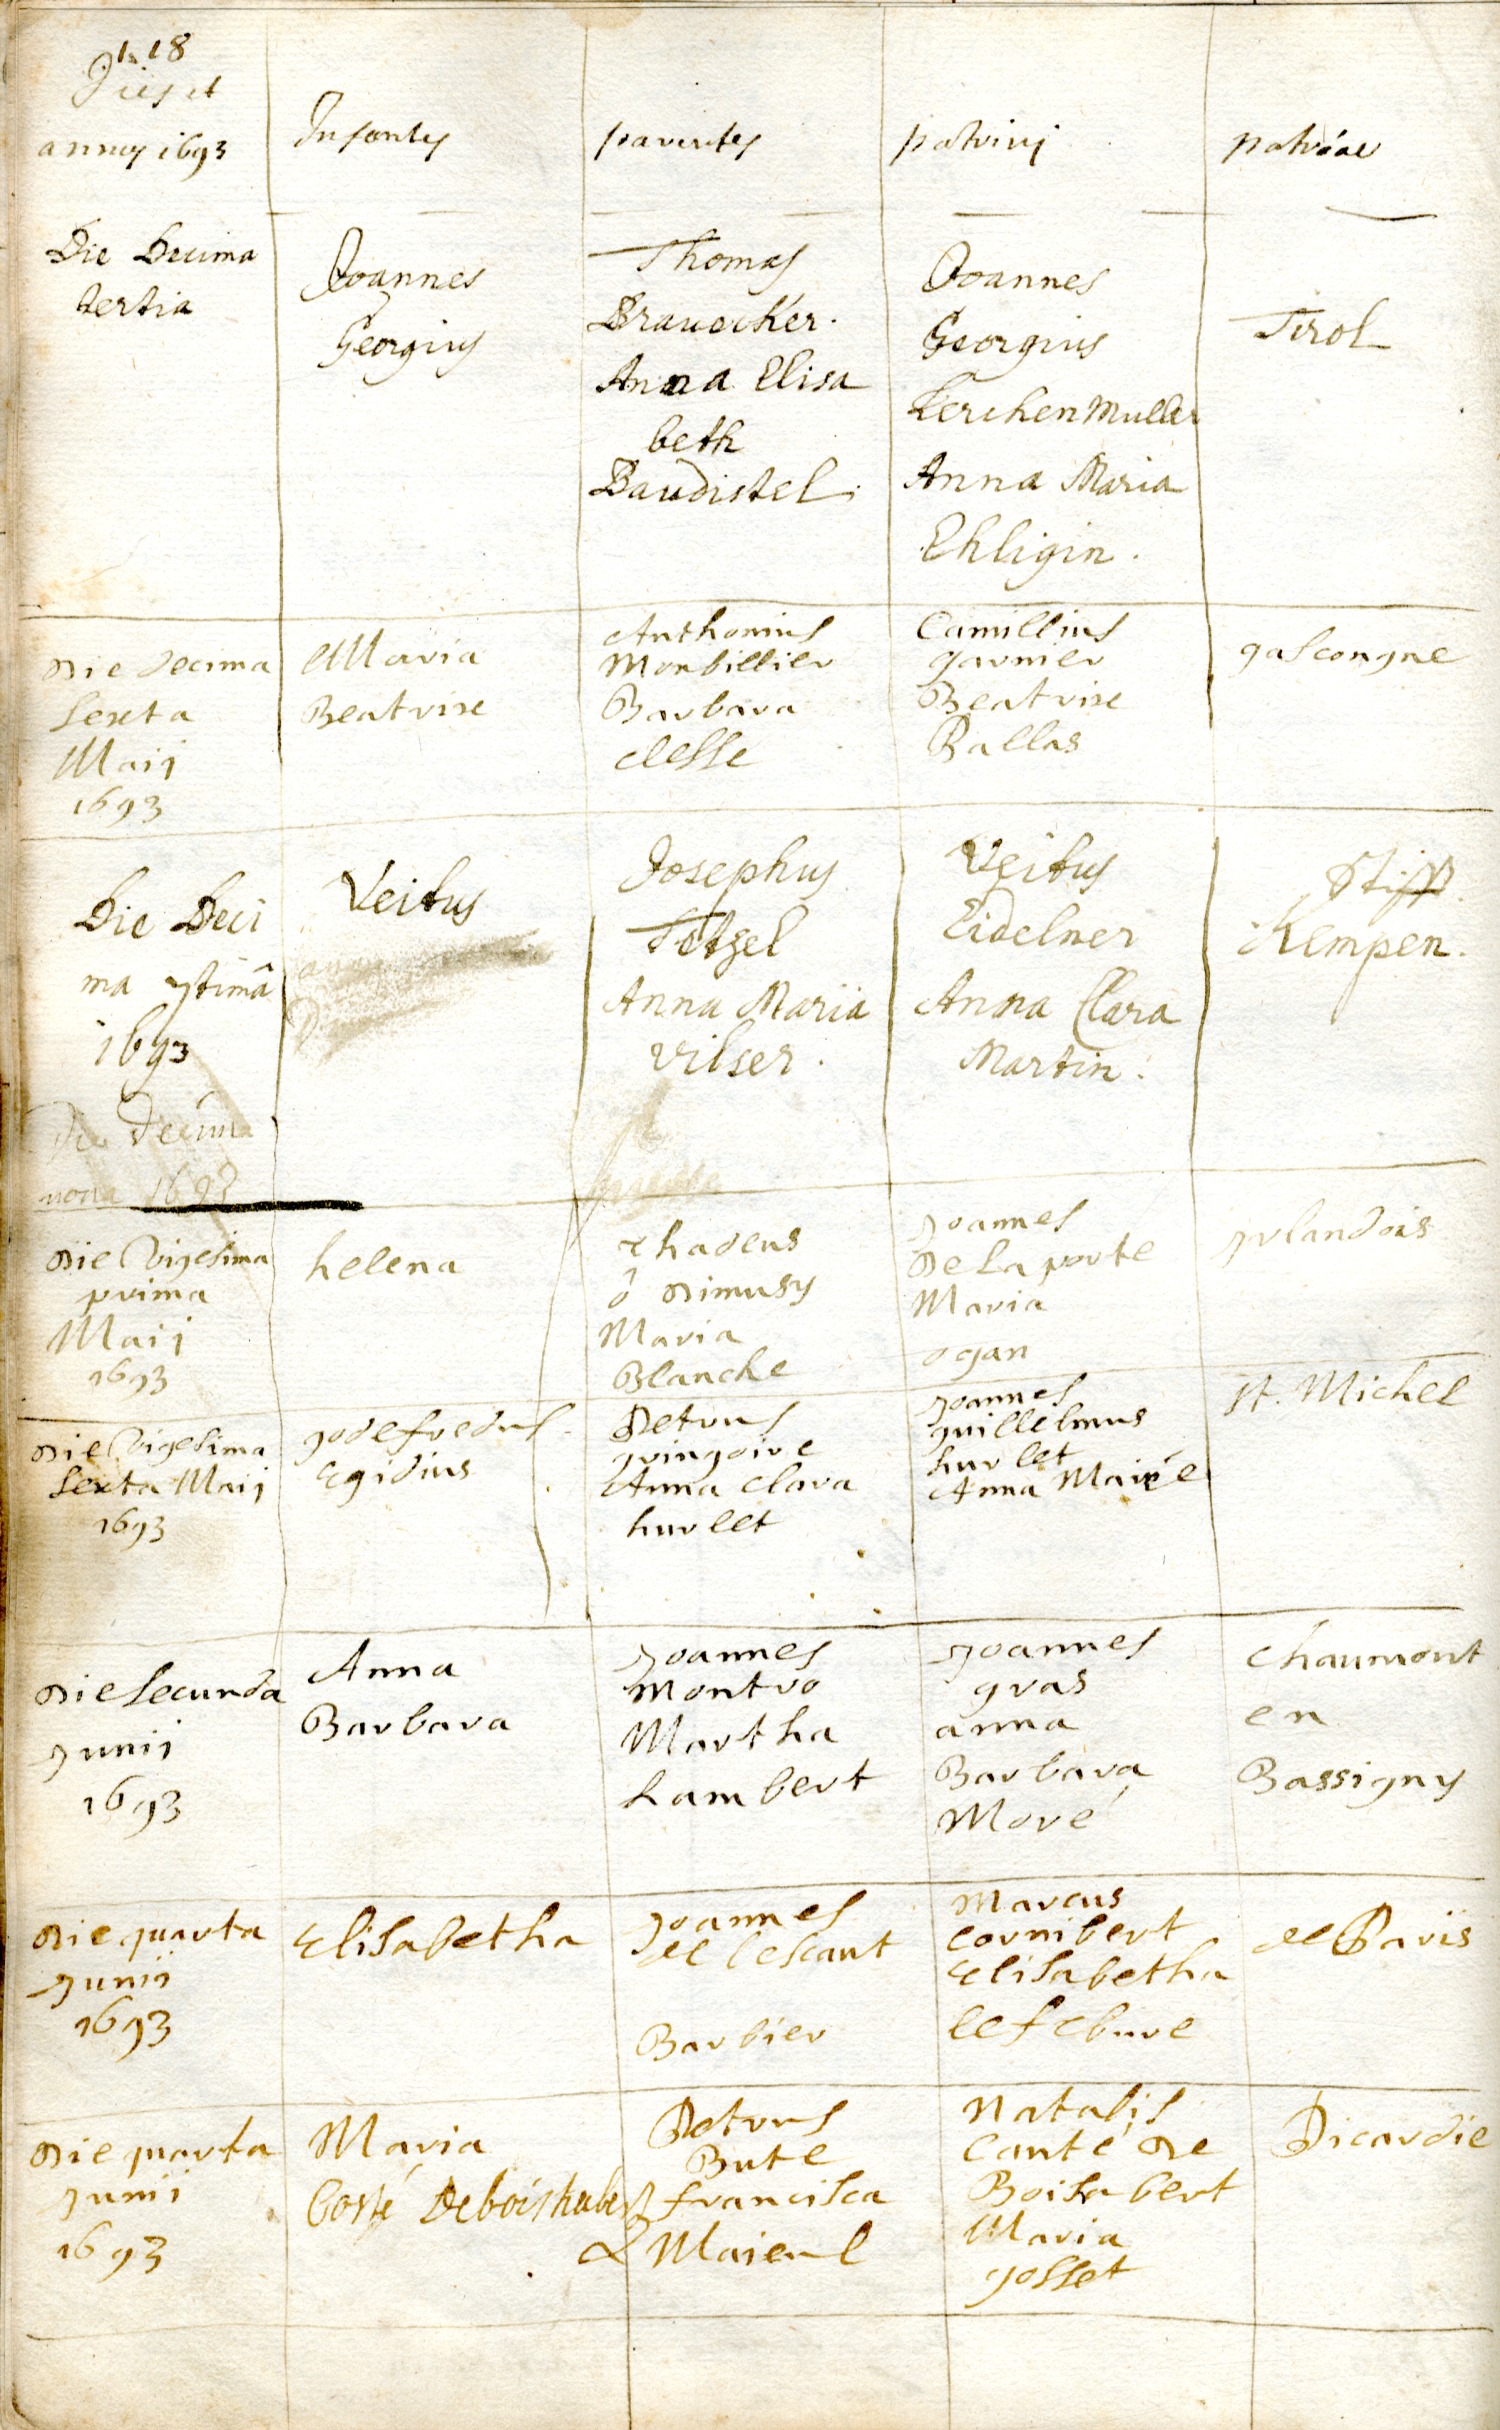 118
Dies et
annus 1693
Infantes
parentes
patrini
patriae
Die Decima
tertia
Joannes
Georgius
Thomas
Brauecker.
Anna Elisa
beth
Baudistel.
Joannes
Georgius
KerchenMuller
Anna Maria
Ehligin.
Tirol
Die Decima
sexta
Maij
1693
Maria
Beatrixe
Anthonius
Monbillier
Barbara
Clesse
Camillius
garnier
Beatrixe
Ballas
gascongne
Die Deci
ma 7timâ
1693
Veitus
Josephus
Tetzel
Anna Maria
Vilser.
Veitus
Eidelner
Anna Clara
Martin.
Stifft
Kempen.
Die Decima
nona 1693
Die Vigesima
prima
Maij
1693
helena
Thadeus
ô Dimusy
Maria
Blanche
Joannes
De La porte
Maria
ogan
Irlandois
Die Vigesima
sexta Maij
1693
godefredus
Egidius
Petrus
gringoire
Anna Clara
hurlet
Joannes
guillelmus
hurlet
Anna Mairée
St. Michel
Die secunda
Junij
1693
Anna
Barbara
Joannes
Montro
Martha
Lambert
Joannes
gras
anna
Barbara
Moré
Chaumont
en
Bassigny
Die quarta
Junij
1693
Elisabetha
Joannes
de lescaut
Barbier
Marcus
Cornibert
Elisabetha
lefebure
de Paris
Die quarta
Junij
1693
Maria
Costé Deboishubert
Petrus
Bute
francisca
&
Maieul
Natalis
Canté De
Boisubert
Maria
gosset
Picardie